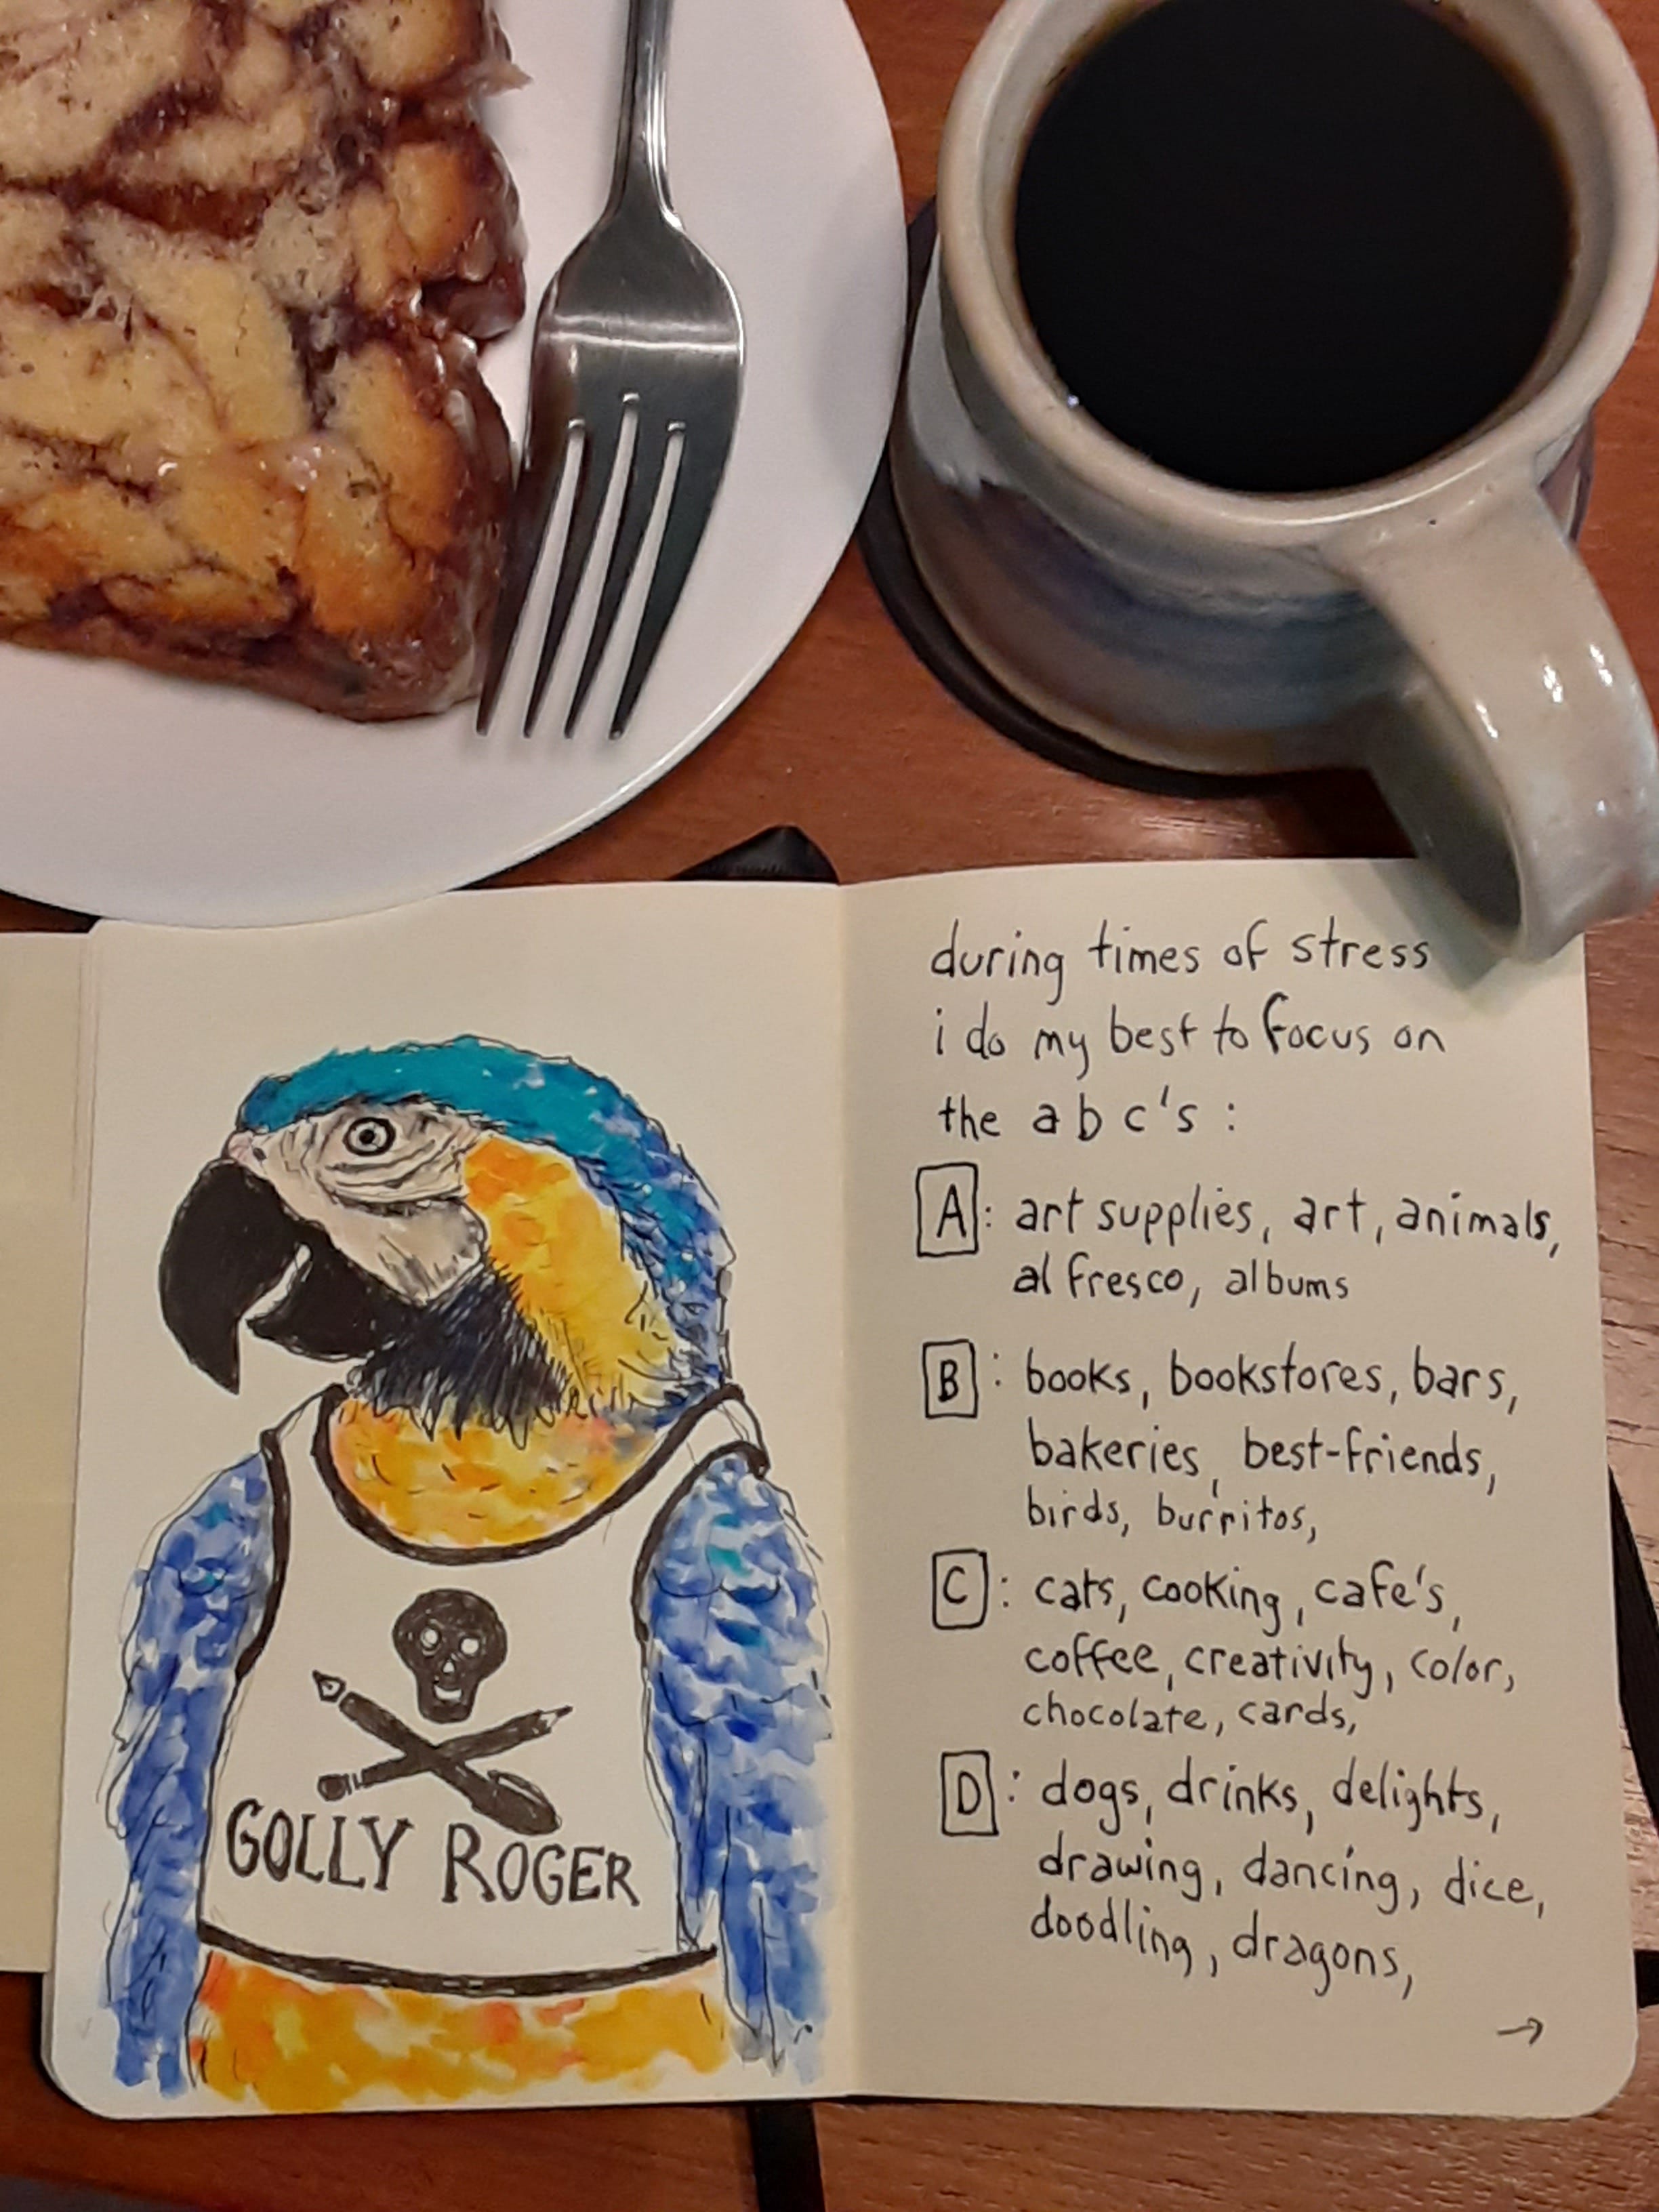 GOLLY ROGER
during times of stress
i do my best to focus on
the a b c's :
A : art supplies, art, animals,
al fresco, albums
B : books, bookstores, bars,
bakeries, best-friends,
birds, burritos,
C : cats, cooking, cafe's,
coffee, creativity, color,
chocolate, cards,
D : dogs, drinks, delights,
drawing, dancing, dice,
doodling, dragons,
→